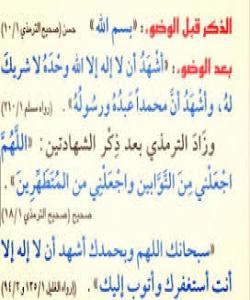 الذكر قبل الوضوء: «بسم الله» حسن (صحيح الترمذي ١/١٠)
بعد الوضوء: «أشْهَدُ أن لا إله إلا الله وحْدَهُ لا شريكَ
لهُ، وأشهَدُ أنَّ محمداً عَبدُهُ ورسُولُهُ». (رواه مسلم ٢١٠/١)
وزَادَ الترمذي بعد ذِكْر الشهادتين: «اللَّهُمَّ
اجْعَلْني مِنَ التَّوَّابين واجْعَلْني من المُتَطَهِّرِينَ».
صحيح (صحيح الترمذي ١٨/١)
«سبحانك اللهم وبحمدك أشهد أن لا إله إلا
أنت أستغفرك وأتوب إليك». (إرواء الغليل ١٣٥/١ و ٩٤/٢)